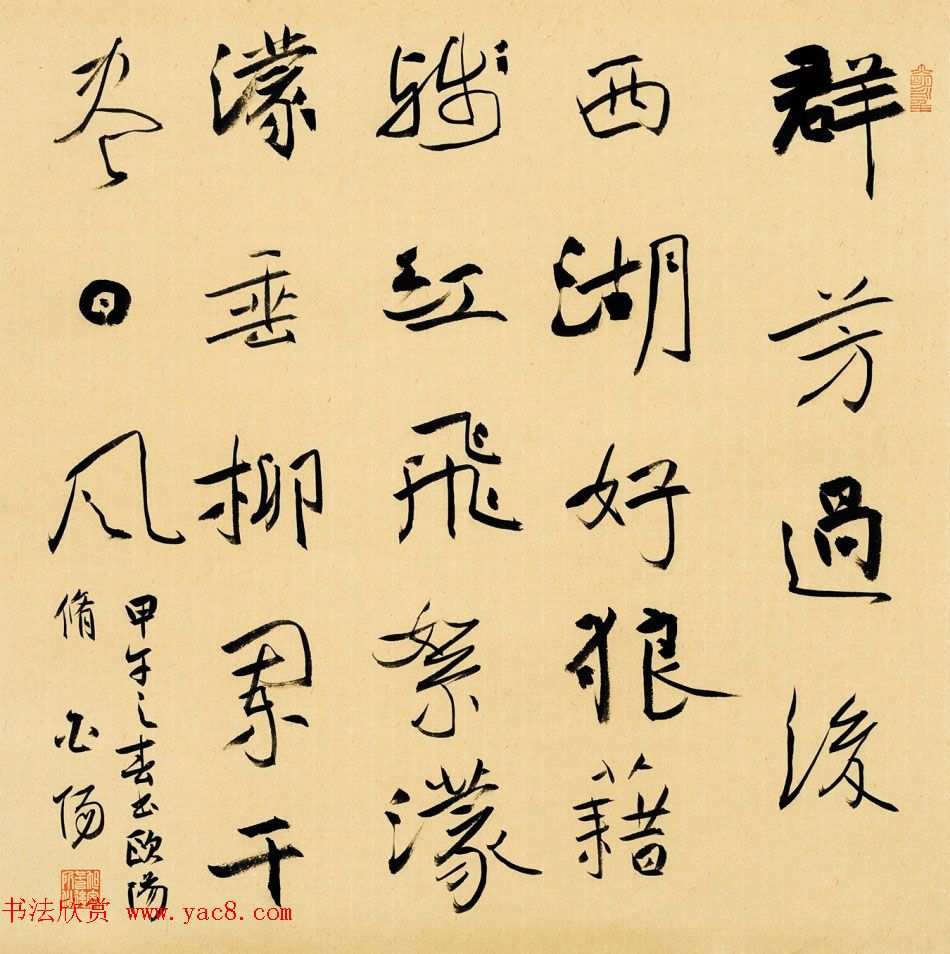 群芳過後
西湖好狼藉
殘紅飛絮濛
濛垂柳闌干
盡日風
甲午之春书歐陽
脩
书法欣赏 www.yac8.com